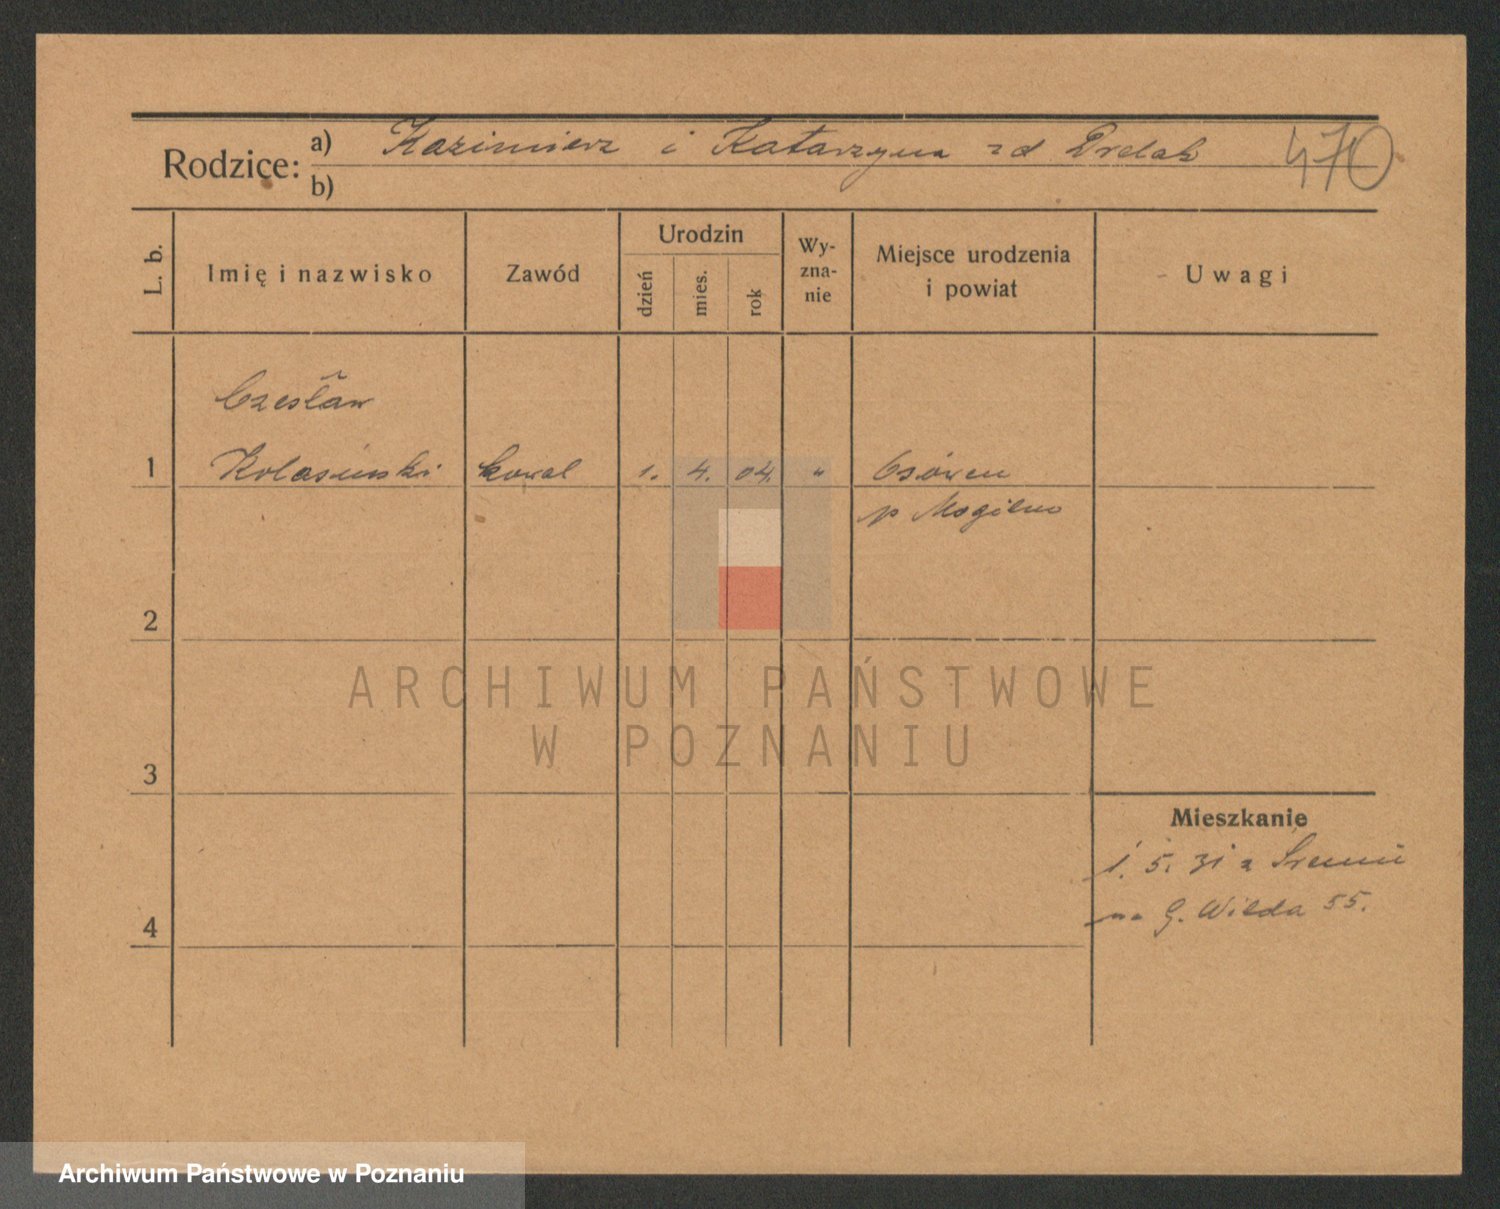 Rodzice:
a) Kazimierz i Katarzyna zd Drelak
470
b)
L. b.
Imię i nazwisko
Zawód
Urodzin
dzień
mies.
rok
Wy-
zna-
nie
Miejsce urodzenia
i powiat
Uwagi
Czesław
1 Kolasiński kowal 1. 4. 04. "
p Mogilno
2
3
4
Mieszkanie
1. 5. 31 z Śremu
na G. Wilda 55.
ARCHIWUM PAŃSTWOWE
W POZNANIU
Archiwum Państwowe w Poznaniu